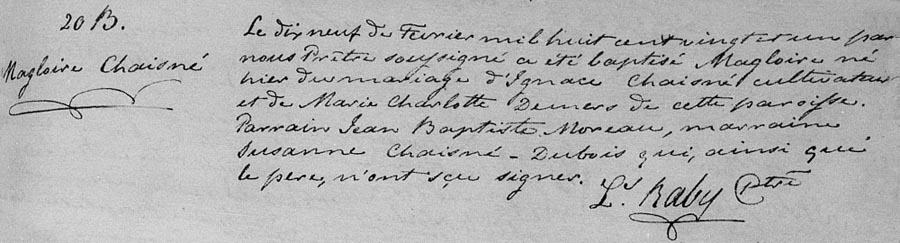 20 B.
Magloire Chaisné
Le dix neuf de Fevrier mil huit cent vingt et un par
nous Prêtre soussigné a été baptisé Magloire né
hier du mariage d'Ignace Chaisné cultivateur
et de Marie Charlotte Demers de cette paroisse.
Parrain Jean Baptiste Moreau, marraine
Susanne Chaisné - Dubois qui, ainsi que
le pere, n'ont sçu signer.
Ls Raby Ptre